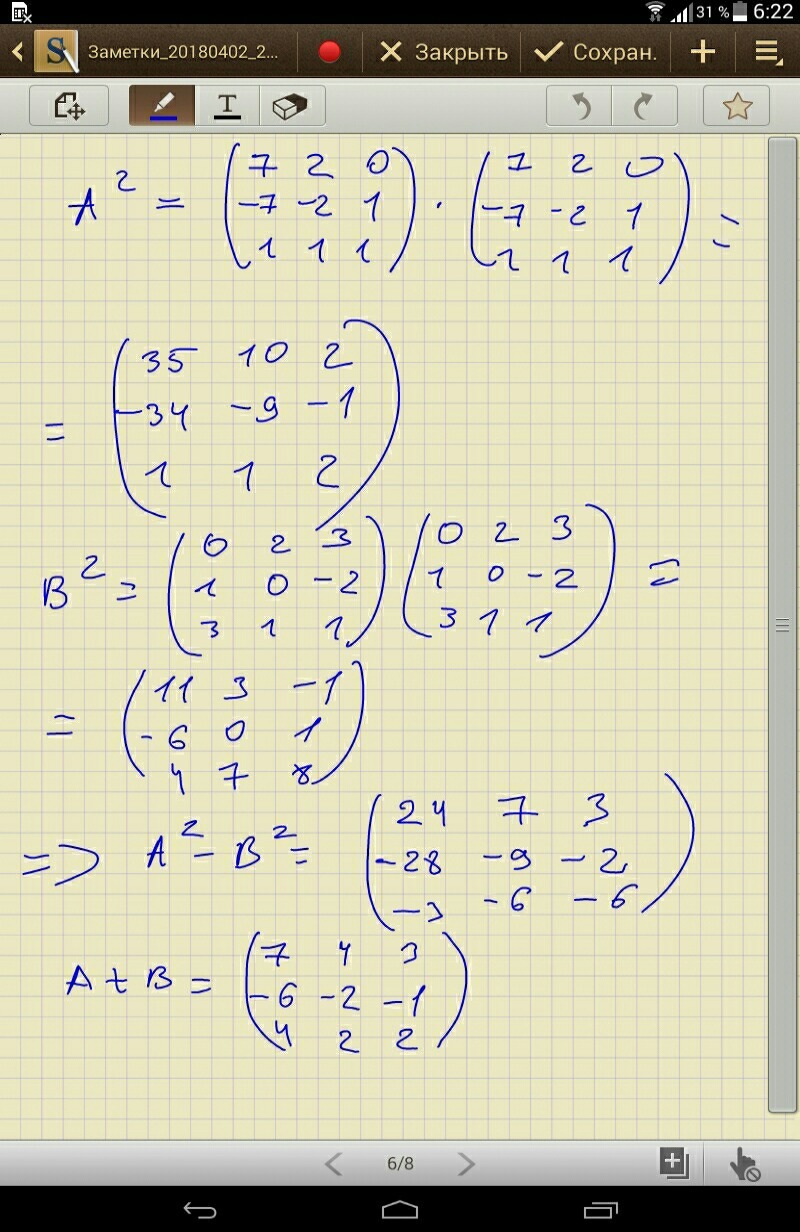 31 % 6:22
Заметки_20180402_2... Закрыть Сохран.
T
A² = (7 2 0) · (7 2 0) =
(-7 -2 1) (-7 -2 1)
(1 1 1) (1 1 1)
= (35 10 2)
(-34 -9 -1)
(1 1 2)
B² = (0 2 3) (0 2 3) =
(1 0 -2) (1 0 -2)
(3 1 1) (3 1 1)
= (11 3 -1)
(-6 0 1)
(4 7 8)
=> A² - B² = (24 7 3)
(-28 -9 -2)
(-3 -6 -6)
A + B = (7 4 3)
(-6 -2 -1)
(4 2 2)
6/8